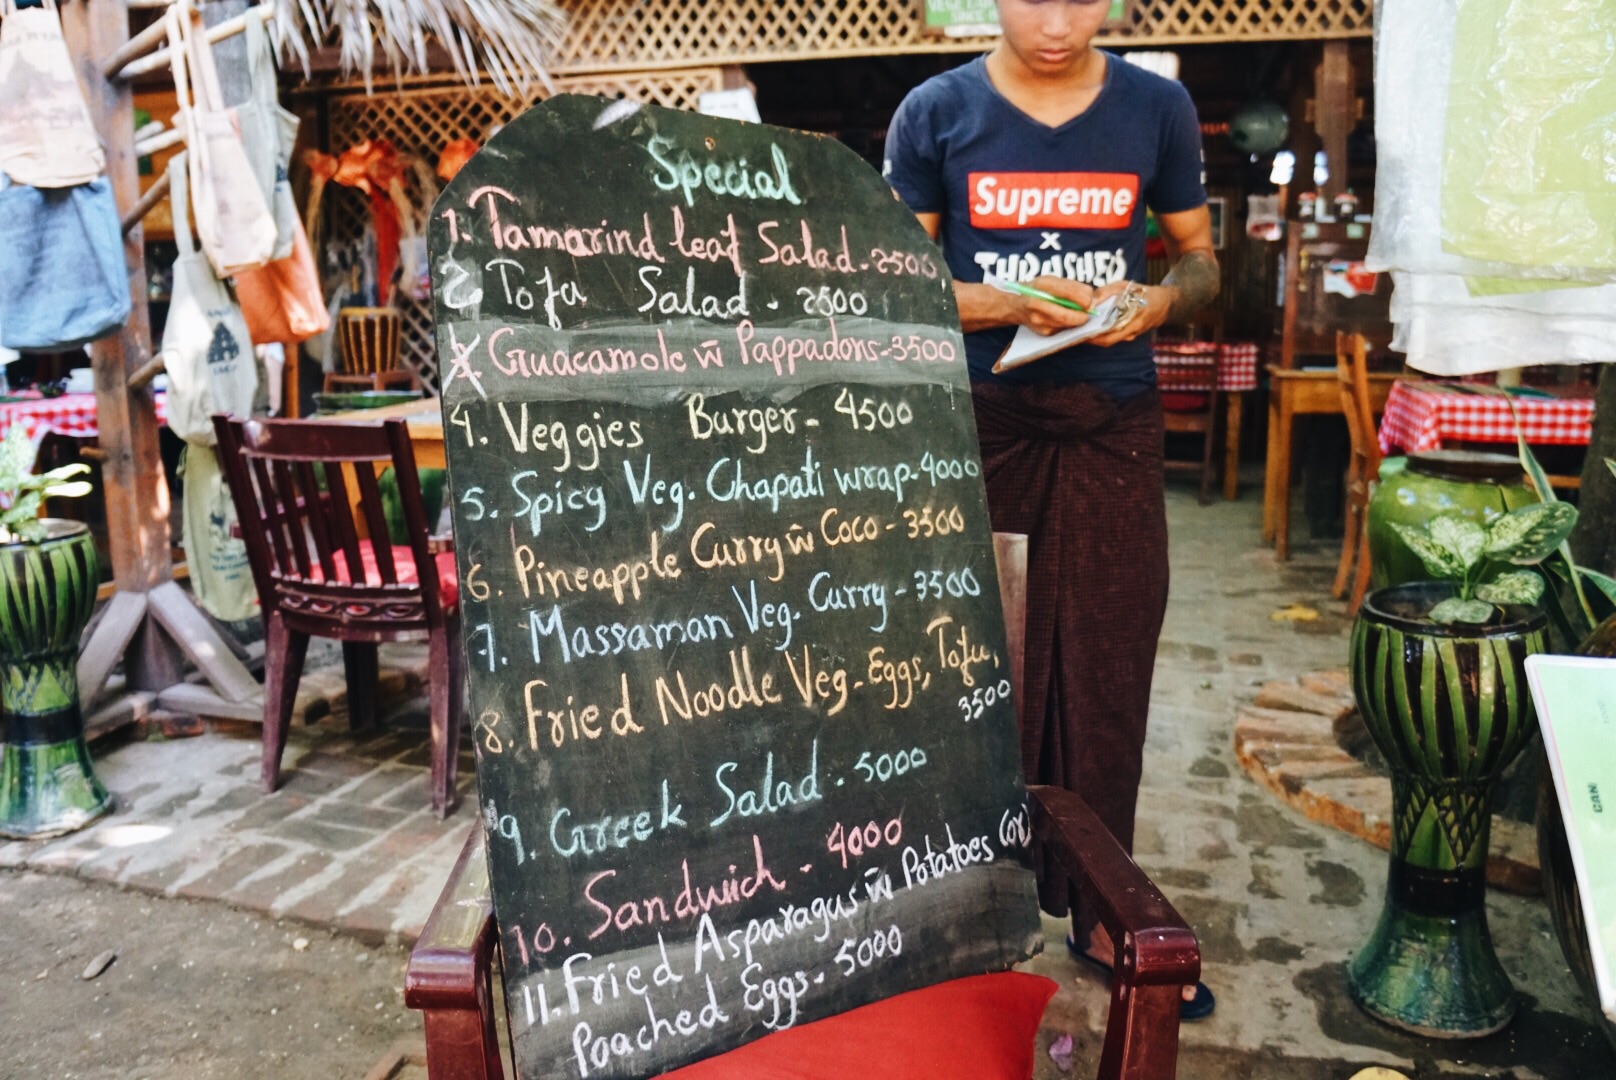 Special
1. Tamarind leaf Salad. 2500
2. Tofu Salad - 2500
Guacamole w̄ Pappadons-3500
4. Veggies Burger - 4500
5. Spicy Veg. Chapati wrap-4000
6. Pineapple Curry w̄ Coco - 3500
7. Massaman Veg. Curry - 3500
8. Fried Noodle Veg-Eggs, Tofu,
3500
9. Greek Salad - 5000
10. Sandwich - 4000
11. Fried Asparagus w̄ Potatoes (or)
Poached Eggs - 5000
Supreme
x
THRASHER
CAN